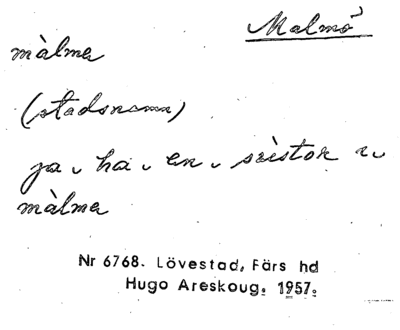 Malmö
màlma
(stadsnamn)
ja ˬ ha ˬ en ˬ sŭstor ˬ
màlma
Nr 6768. Lövestad, Färs hd
Hugo Areskoug. 1957.